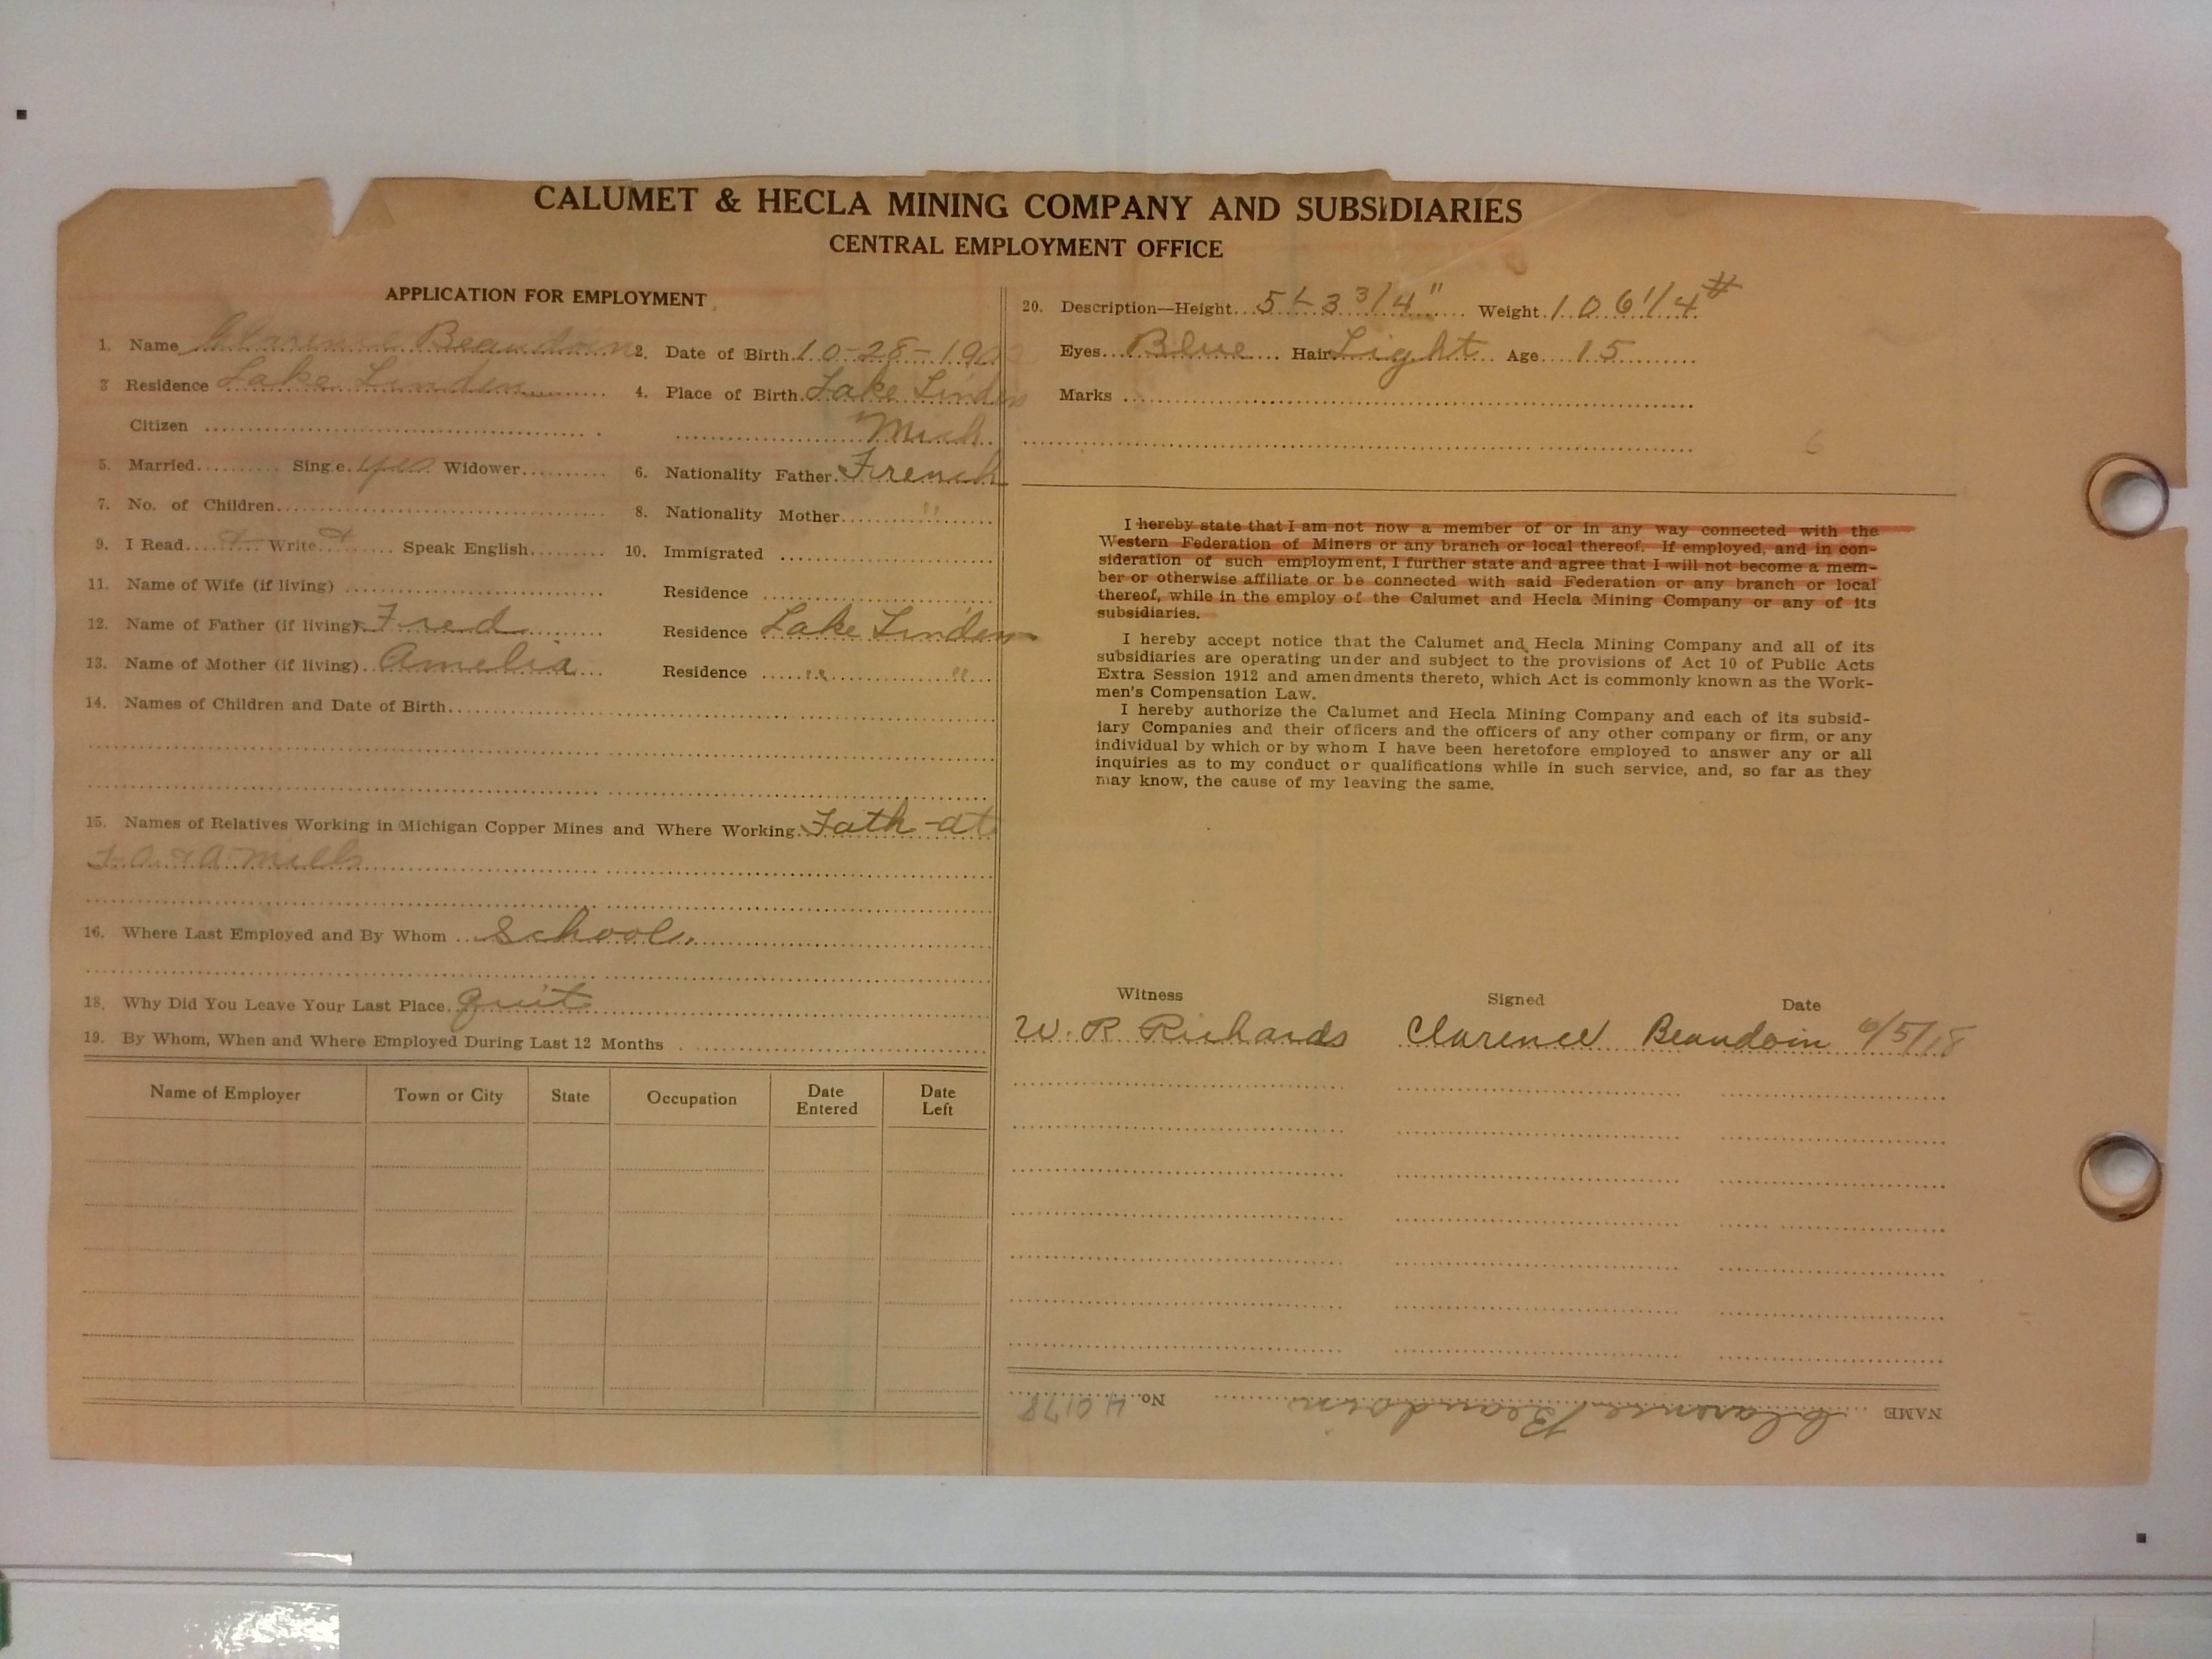 CALUMET & HECLA MINING COMPANY AND SUBSIDIARIES
CENTRAL EMPLOYMENT OFFICE
APPLICATION FOR EMPLOYMENT
1. Name Clarence Beaudoin 2. Date of Birth 10-28-1902
3 Residence Lake Linden 4. Place of Birth Lake Linden
Citizen Mich
5. Married Single yes Widower 6. Nationality Father French
7. No. of Children 8. Nationality Mother "
9. I Read Write Speak English 10. Immigrated
11. Name of Wife (if living) Residence
12. Name of Father (if living) Fred Residence Lake Linden
13. Name of Mother (if living) Amelia Residence " "
14. Names of Children and Date of Birth
15. Names of Relatives Working in Michigan Copper Mines and Where Working. Fath-at
mills
16. Where Last Employed and By Whom School
18. Why Did You Leave Your Last Place. quit
19. By Whom, When and Where Employed During Last 12 Months
Name of Employer Town or City State Occupation Date Entered Date Left
20. Description—Height 5'-3 3/4" Weight 106 1/4 #
Eyes Blue Hair Light Age 15
Marks
I hereby state that I am not now a member of or in any way connected with the
Western Federation of Miners or any branch or local thereof. If employed, and in con-
sideration of such employment, I further state and agree that I will not become a mem-
ber or otherwise affiliate or be connected with said Federation or any branch or local
thereof, while in the employ of the Calumet and Hecla Mining Company or any of its
subsidiaries.
I hereby accept notice that the Calumet and Hecla Mining Company and all of its
subsidiaries are operating under and subject to the provisions of Act 10 of Public Acts
Extra Session 1912 and amendments thereto, which Act is commonly known as the Work-
men's Compensation Law.
I hereby authorize the Calumet and Hecla Mining Company and each of its subsid-
iary Companies and their officers and the officers of any other company or firm, or any
individual by which or by whom I have been heretofore employed to answer any or all
inquiries as to my conduct or qualifications while in such service, and, so far as they
may know, the cause of my leaving the same.
Witness Signed Date
W. R Richards Clarence Beaudoin 6/5/18
NAME Clarence Beaudoin No. 40178